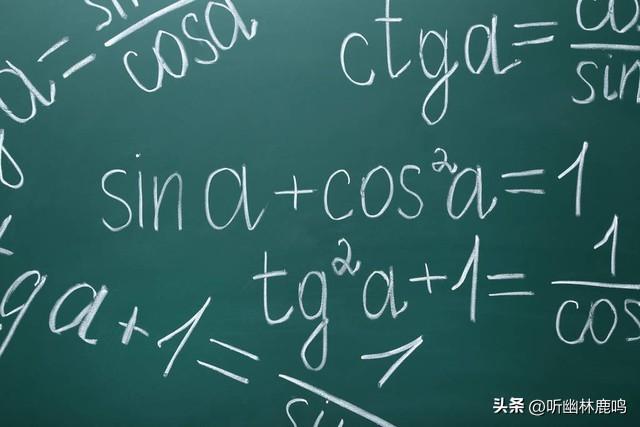 a = sin / cosa
ctga = cos / sin
sin a + cos²a = 1
tg²a + 1 = 1 / cos
ga + 1 = 1 / si
头条 @听幽林鹿鸣